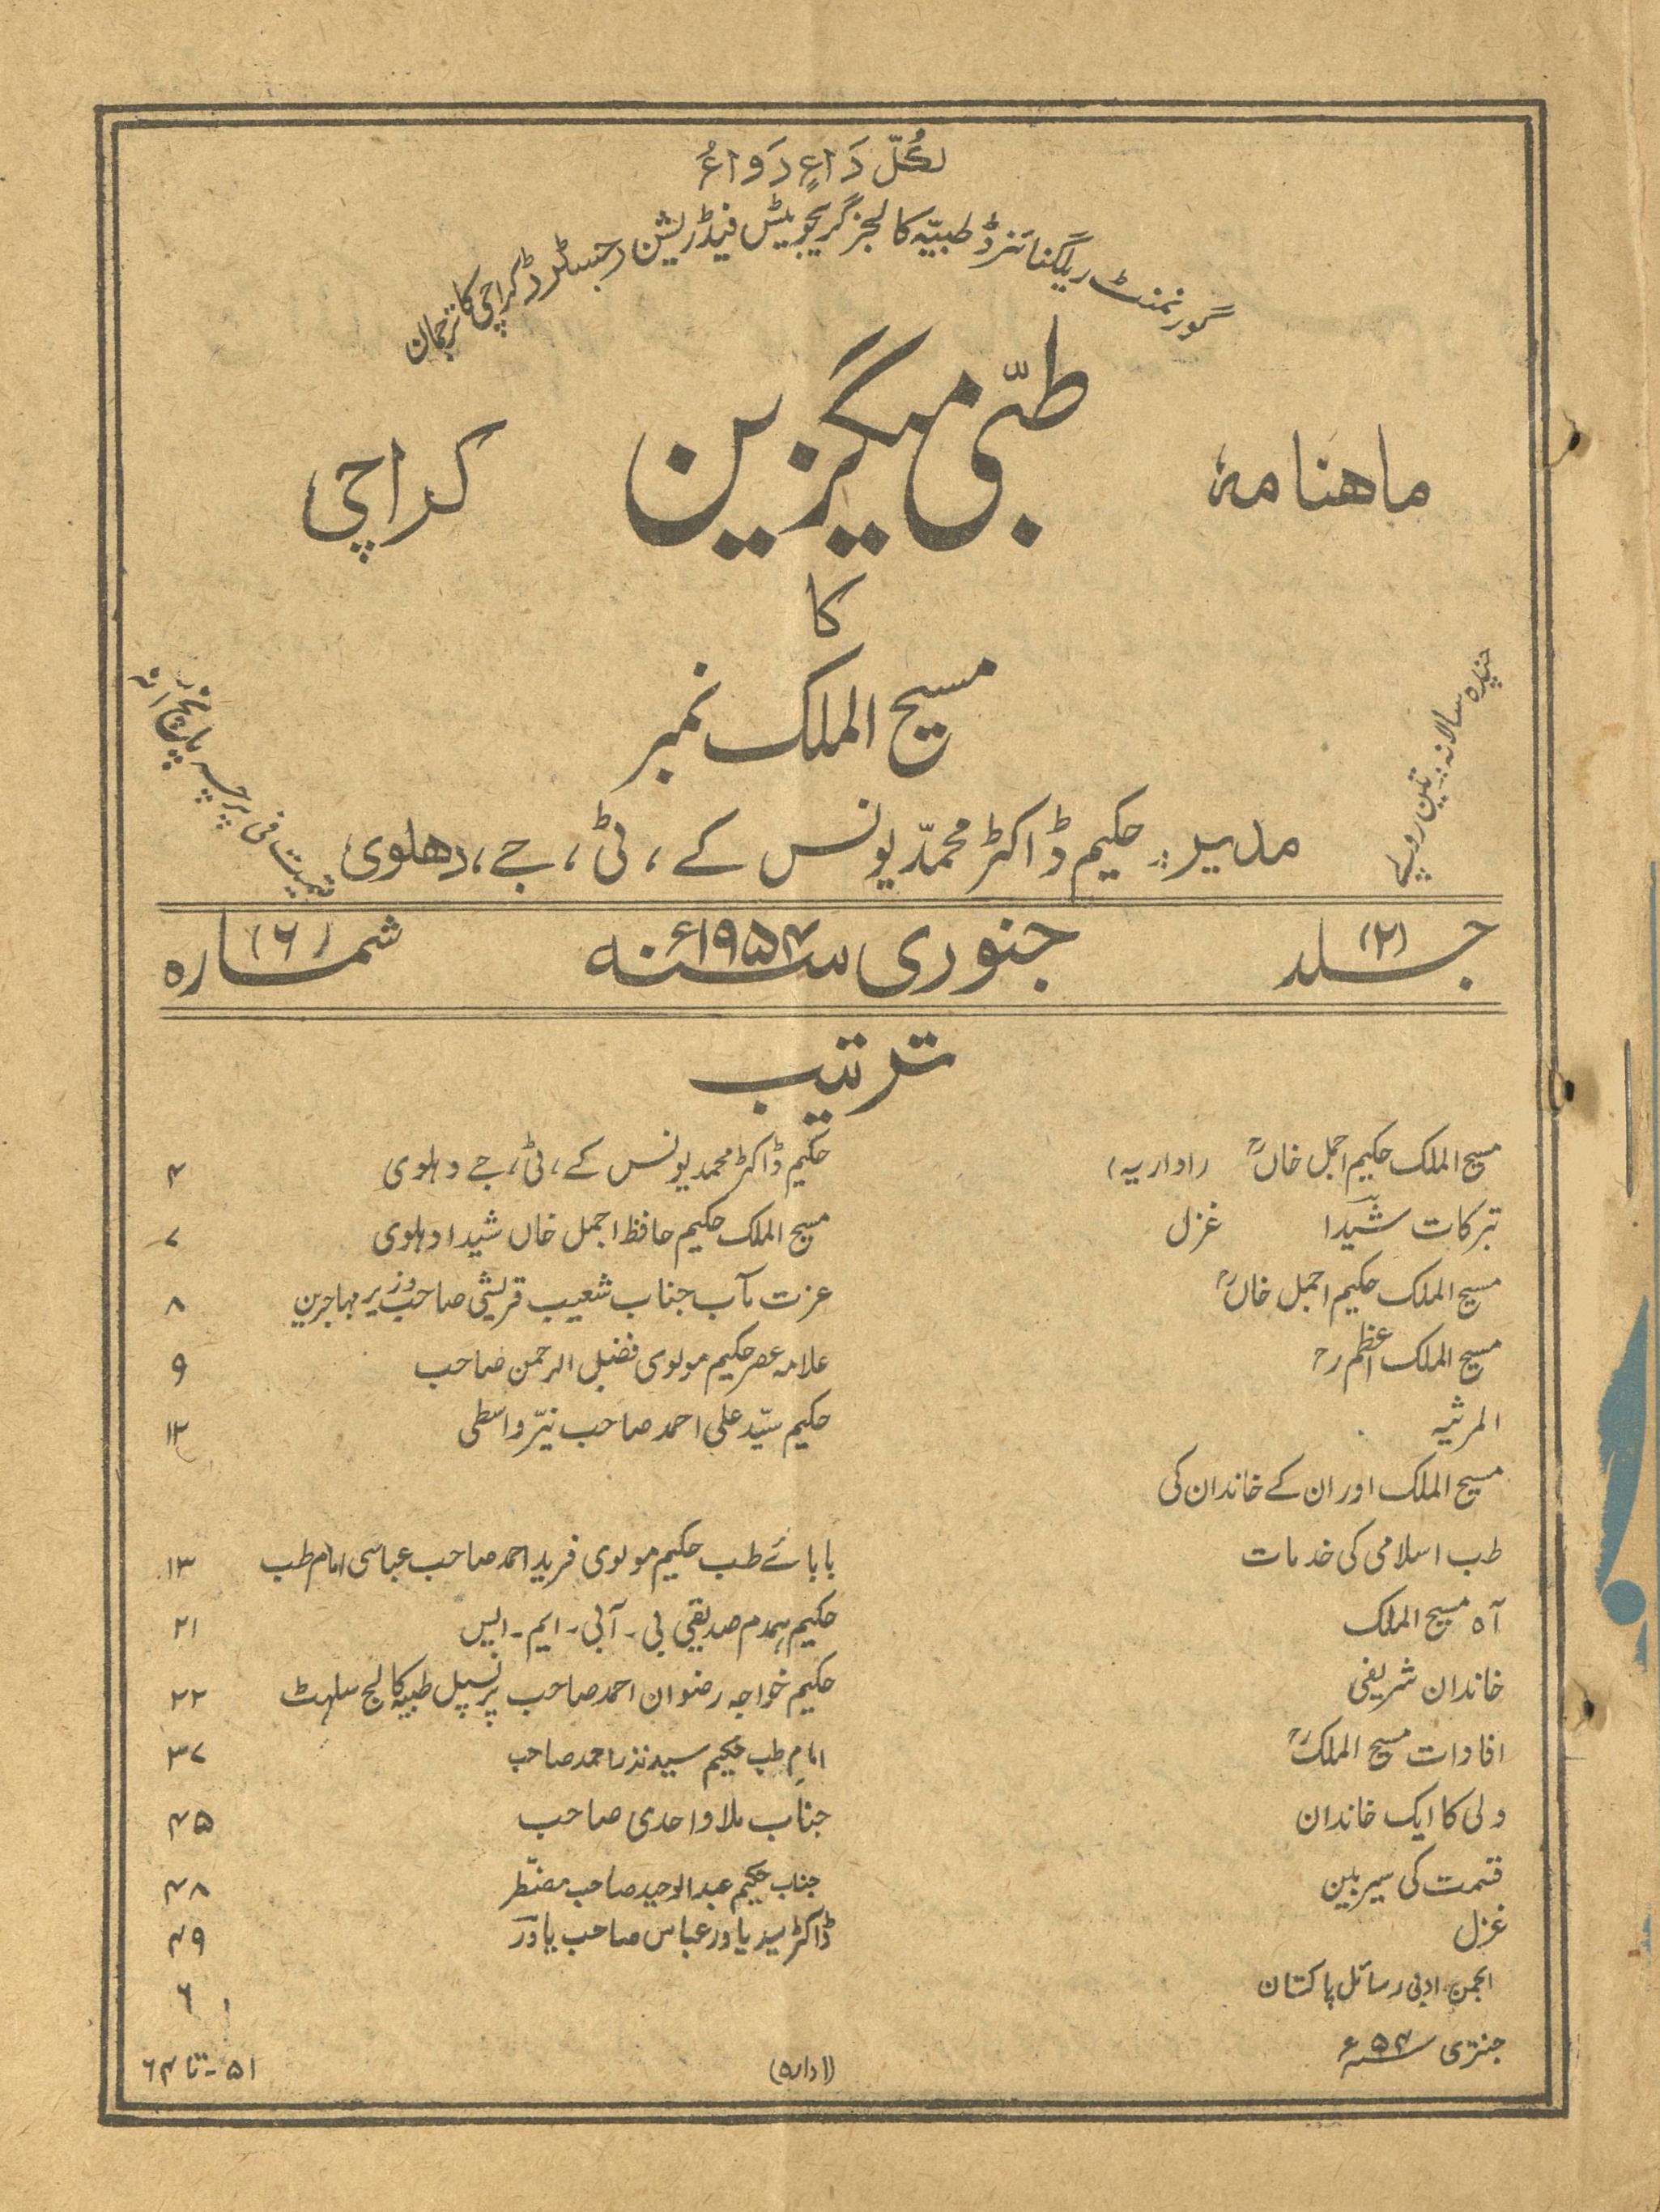 لکُلِّ دَاءٍ دَوَاءُ
گورنمنٹ ریگنائزڈ طبیّہ کالجز گریجویٹس فیڈریشن رجسٹرڈ کراچی کا ترجمان
ماہنامہ طبّی میگزین کراچی
کا
مسیح الملک نمبر
چندہ سالانہ : تین روپیہ
قیمت فی پرچہ پانچ آنہ
مدیر: حکیم ڈاکٹر محمدّ یونس کے، ٹی، جے، دھلوی
جلد (۲) جنوری سنہ ۱۹۵۴ء شمارہ (۶)
ترتیب
مسیح الملک حکیم اجمل خاںؒ (اداریہ) حکیم ڈاکٹر محمد یونس کے، ٹی، جے دہلوی ۴
تبرکات شیدؔا غزل مسیح الملک حکیم حافظ اجمل خاں شیدا دہلوی ۷
مسیح الملک حکیم اجمل خاںؒ عزت مآب جناب شعیب قریشی صاحب وزیر مہاجرین ۸
مسیح الملک اعظم رح علامہ عصر حکیم مولوی فضل الرحمن صاحب ۹
المرثیہ حکیم سیّد علی احمد صاحب نیّر واسطی ۱۲
مسیح الملک اور ان کے خاندان کی
طب اسلامی کی خدمات بابائے طب حکیم مولوی فرید احمد صاحب عباسی امام طب ۱۳
آہ مسیح الملک حکیم ہمدم صدیقی بی۔ آئی۔ ایم۔ ایس ۲۱
خاندان شریفی حکیم خواجہ رضوان احمد صاحب پرنسپل طبیہ کالج سلہٹ ۲۲
افادات مسیح الملکؒ امام طب حکیم سید نذر احمد صاحب ۳۷
دلی کا ایک خاندان جناب ملا واحدی صاحب ۴۵
قسمت کی سیر بین جناب حکیم عبد الوحید صاحب مضطّر ۴۸
غزل ڈاکٹر سید یاور عباس صاحب یاورؔ ۴۹
انجمن ادبی رسائل پاکستان ۶
جنتری سنہ ۵۴ء (ادارہ) ۵۱ - تا ۶۴